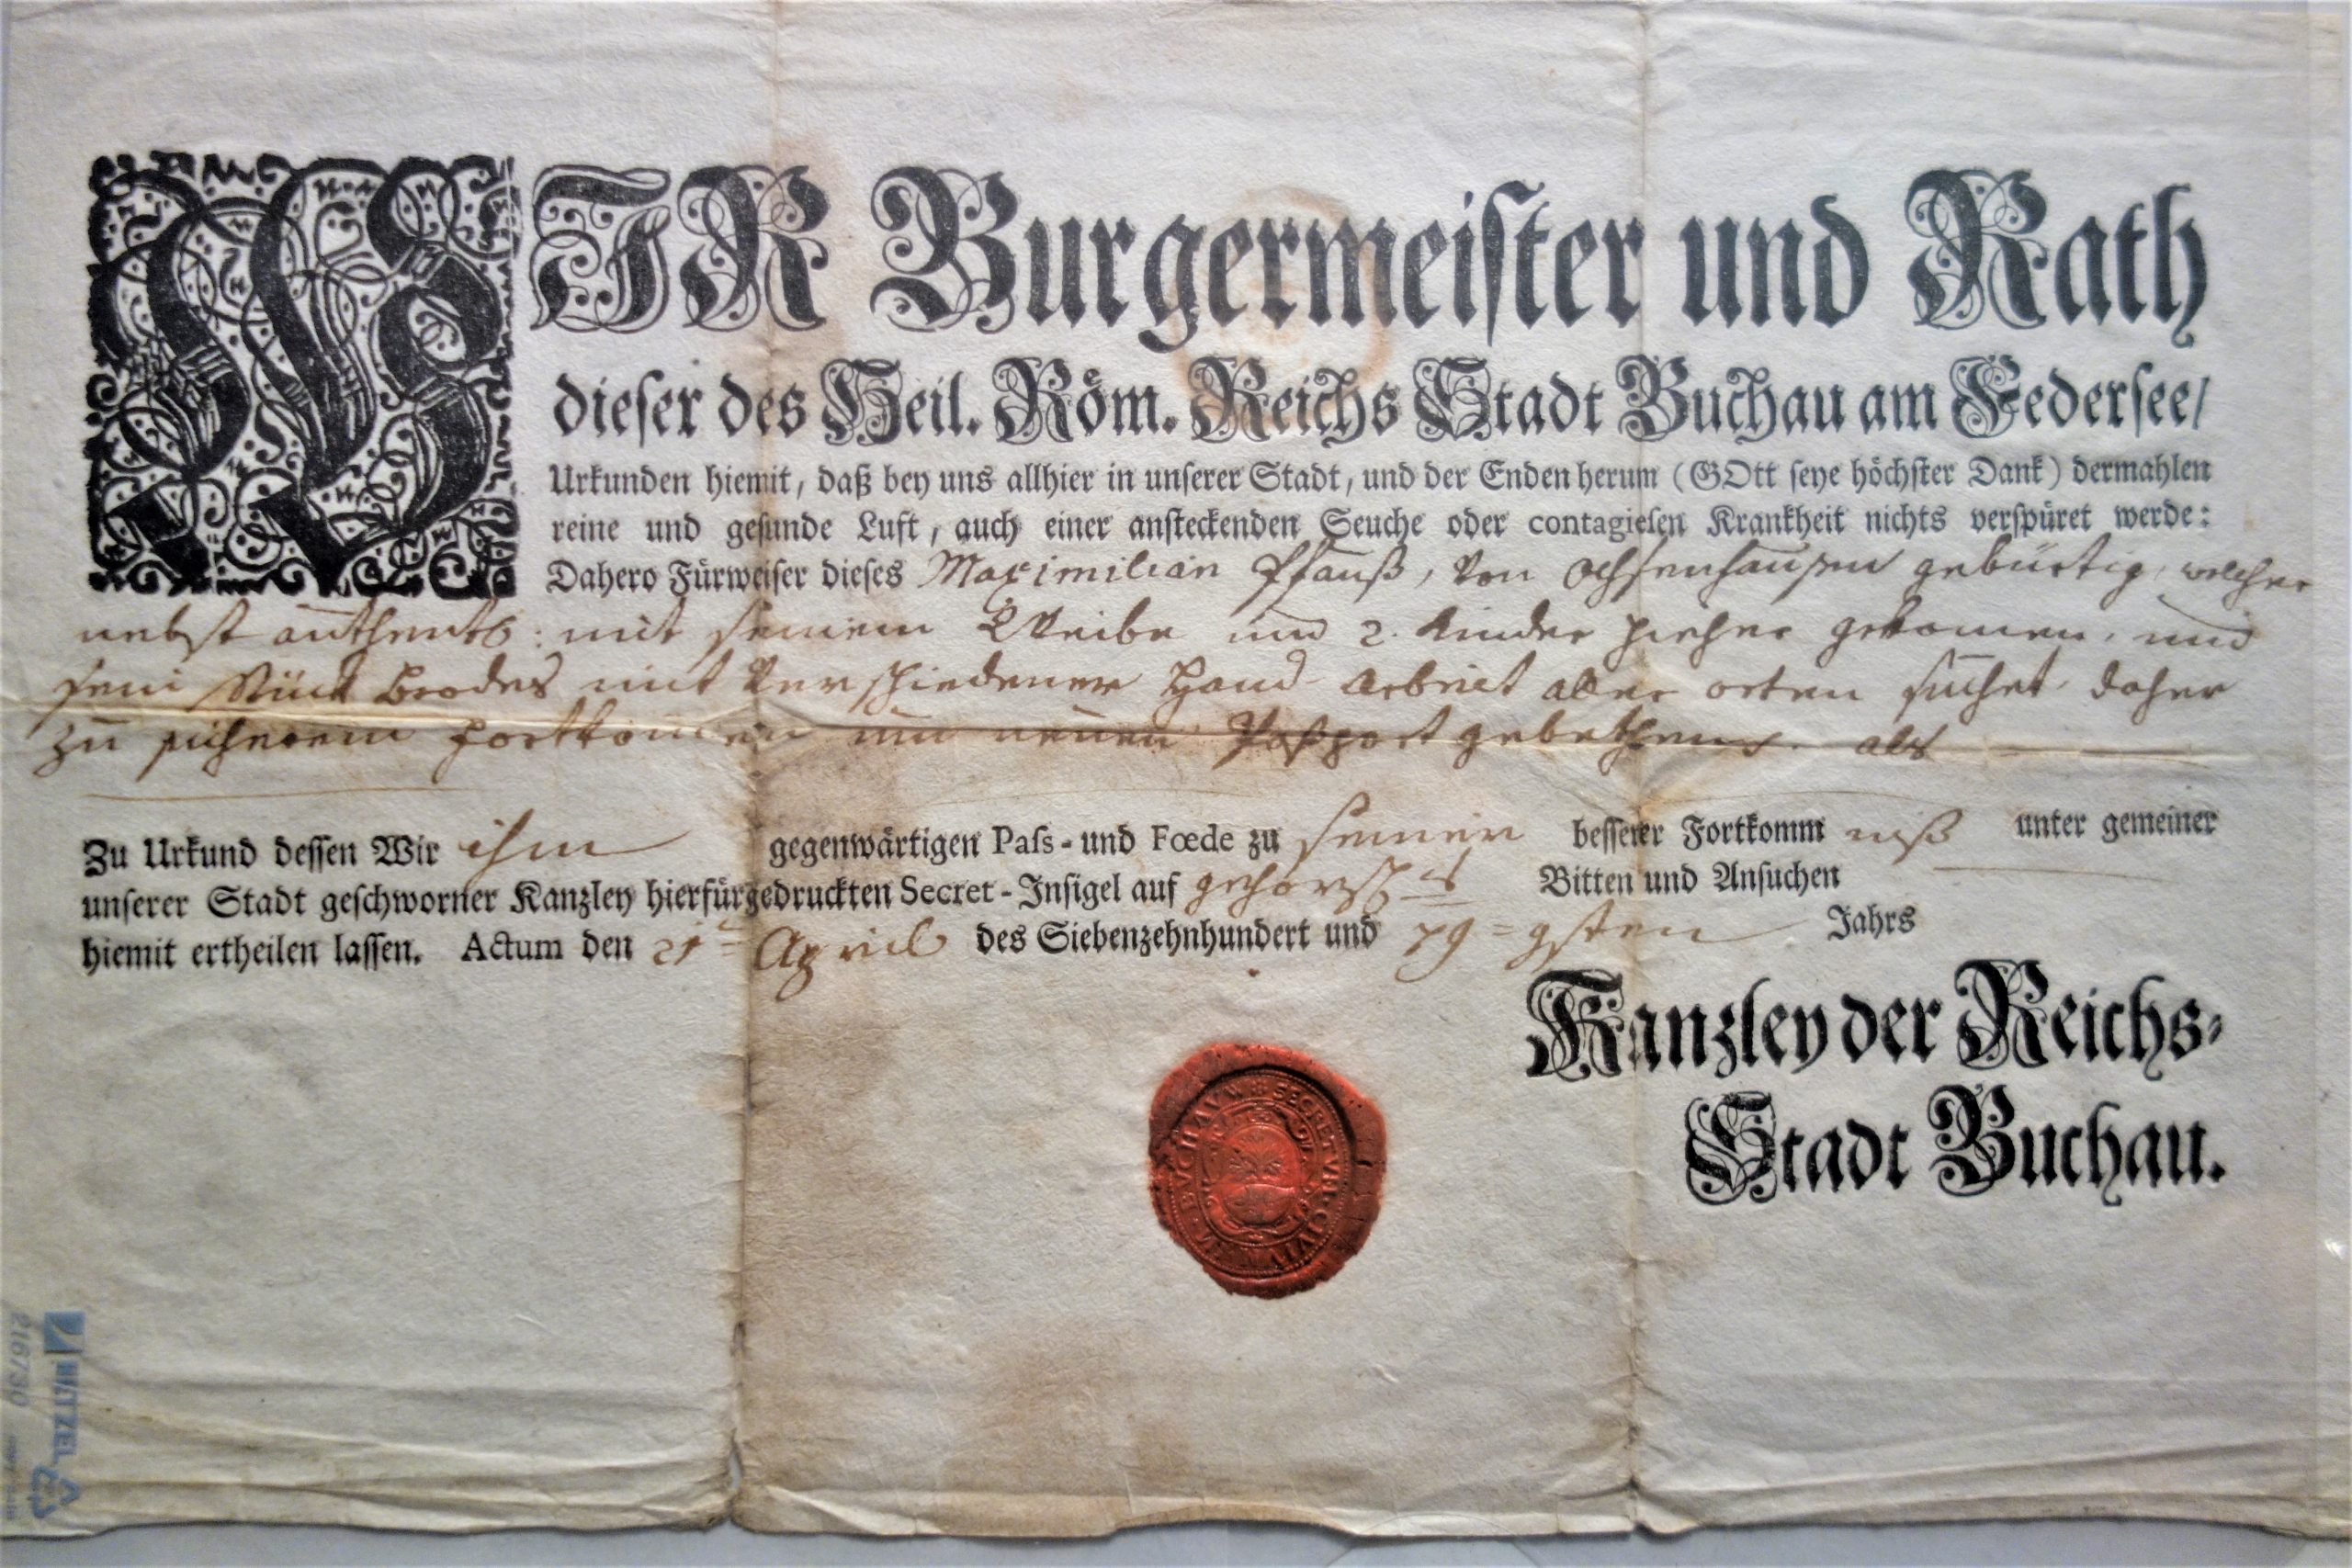 WIR Burgermeister und Rath
dieser des Heil. Röm. Reichs Stadt Buchau am Federsee/
Urkunden hiemit, daß bey uns allhier in unserer Stadt, und der Enden herum (GOtt seye höchster Dank) dermahlen
reine und gesunde Luft, auch einer ansteckenden Seuche oder contagiesen Krankheit nichts verspüret werde:
Dahero Fürweiser dieses Maximilian Pfauß, von Ochsenhausen gebürtig, welcher
nebst authent: mit seinem Weibe und 2. Kinder hieher gekomen, und
sein Stück Brodes mit verschiedener Hand Arbeit aller orten suchet, daher
zu sicherem Fortkomen um neuen Paßport gebethen. als
Zu Urkund dessen Wir ihm gegenwärtigen Pass- und Fœde zu seiner besserer Fortkomm niß unter gemeiner
unserer Stadt geschworner Kanzley hierfürgedruckten Secret-Insigel auf gehors. Bitten und Ansuchen
hiemit ertheilen lassen. Actum den 21t April des Siebenzehnhundert und 79=gsten Jahrs
Kanzley der Reichs-
Stadt Buchau.
SECRETVM CIVIVM IN BVCHAVW
WITZEL
216730